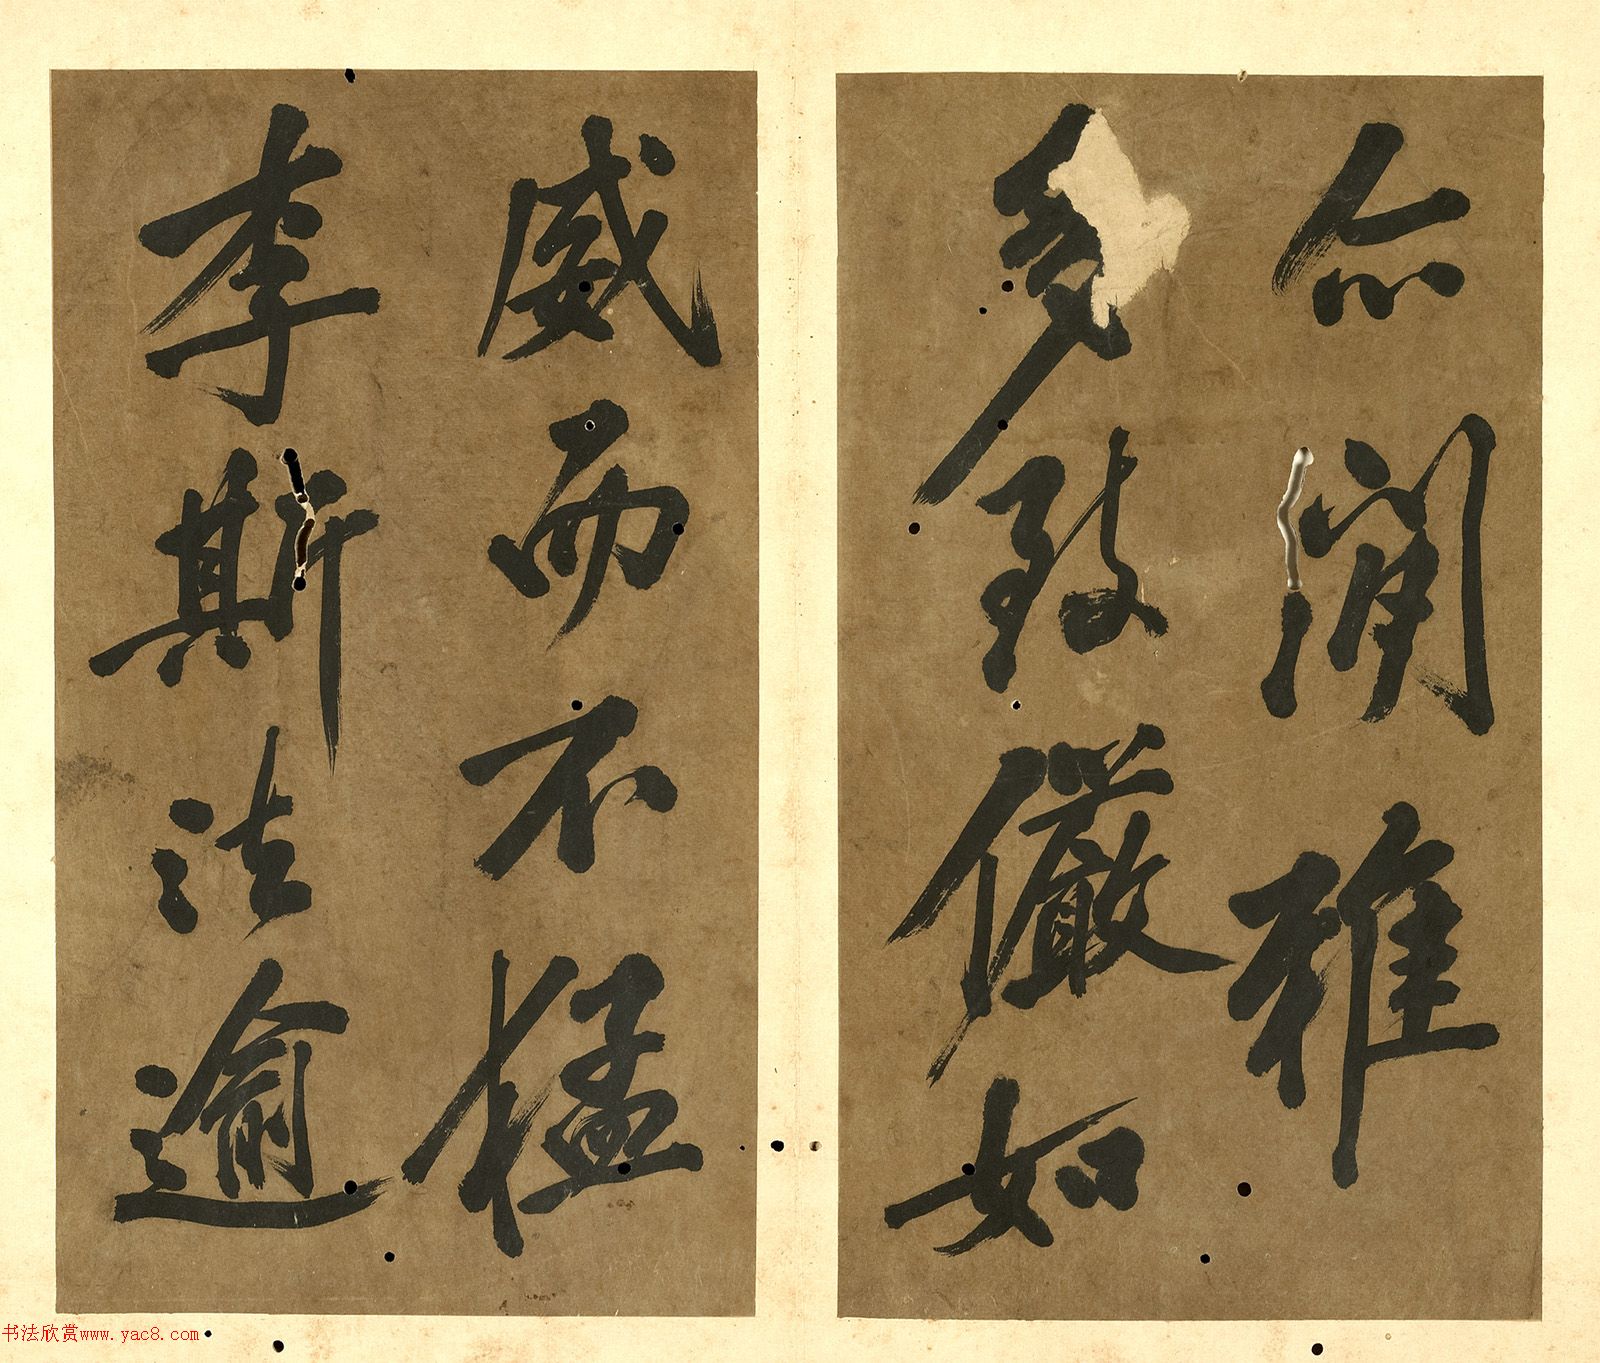 亦閑雅
多致儼如
威而不猛
李斯法逾
书法欣赏www.yac8.com